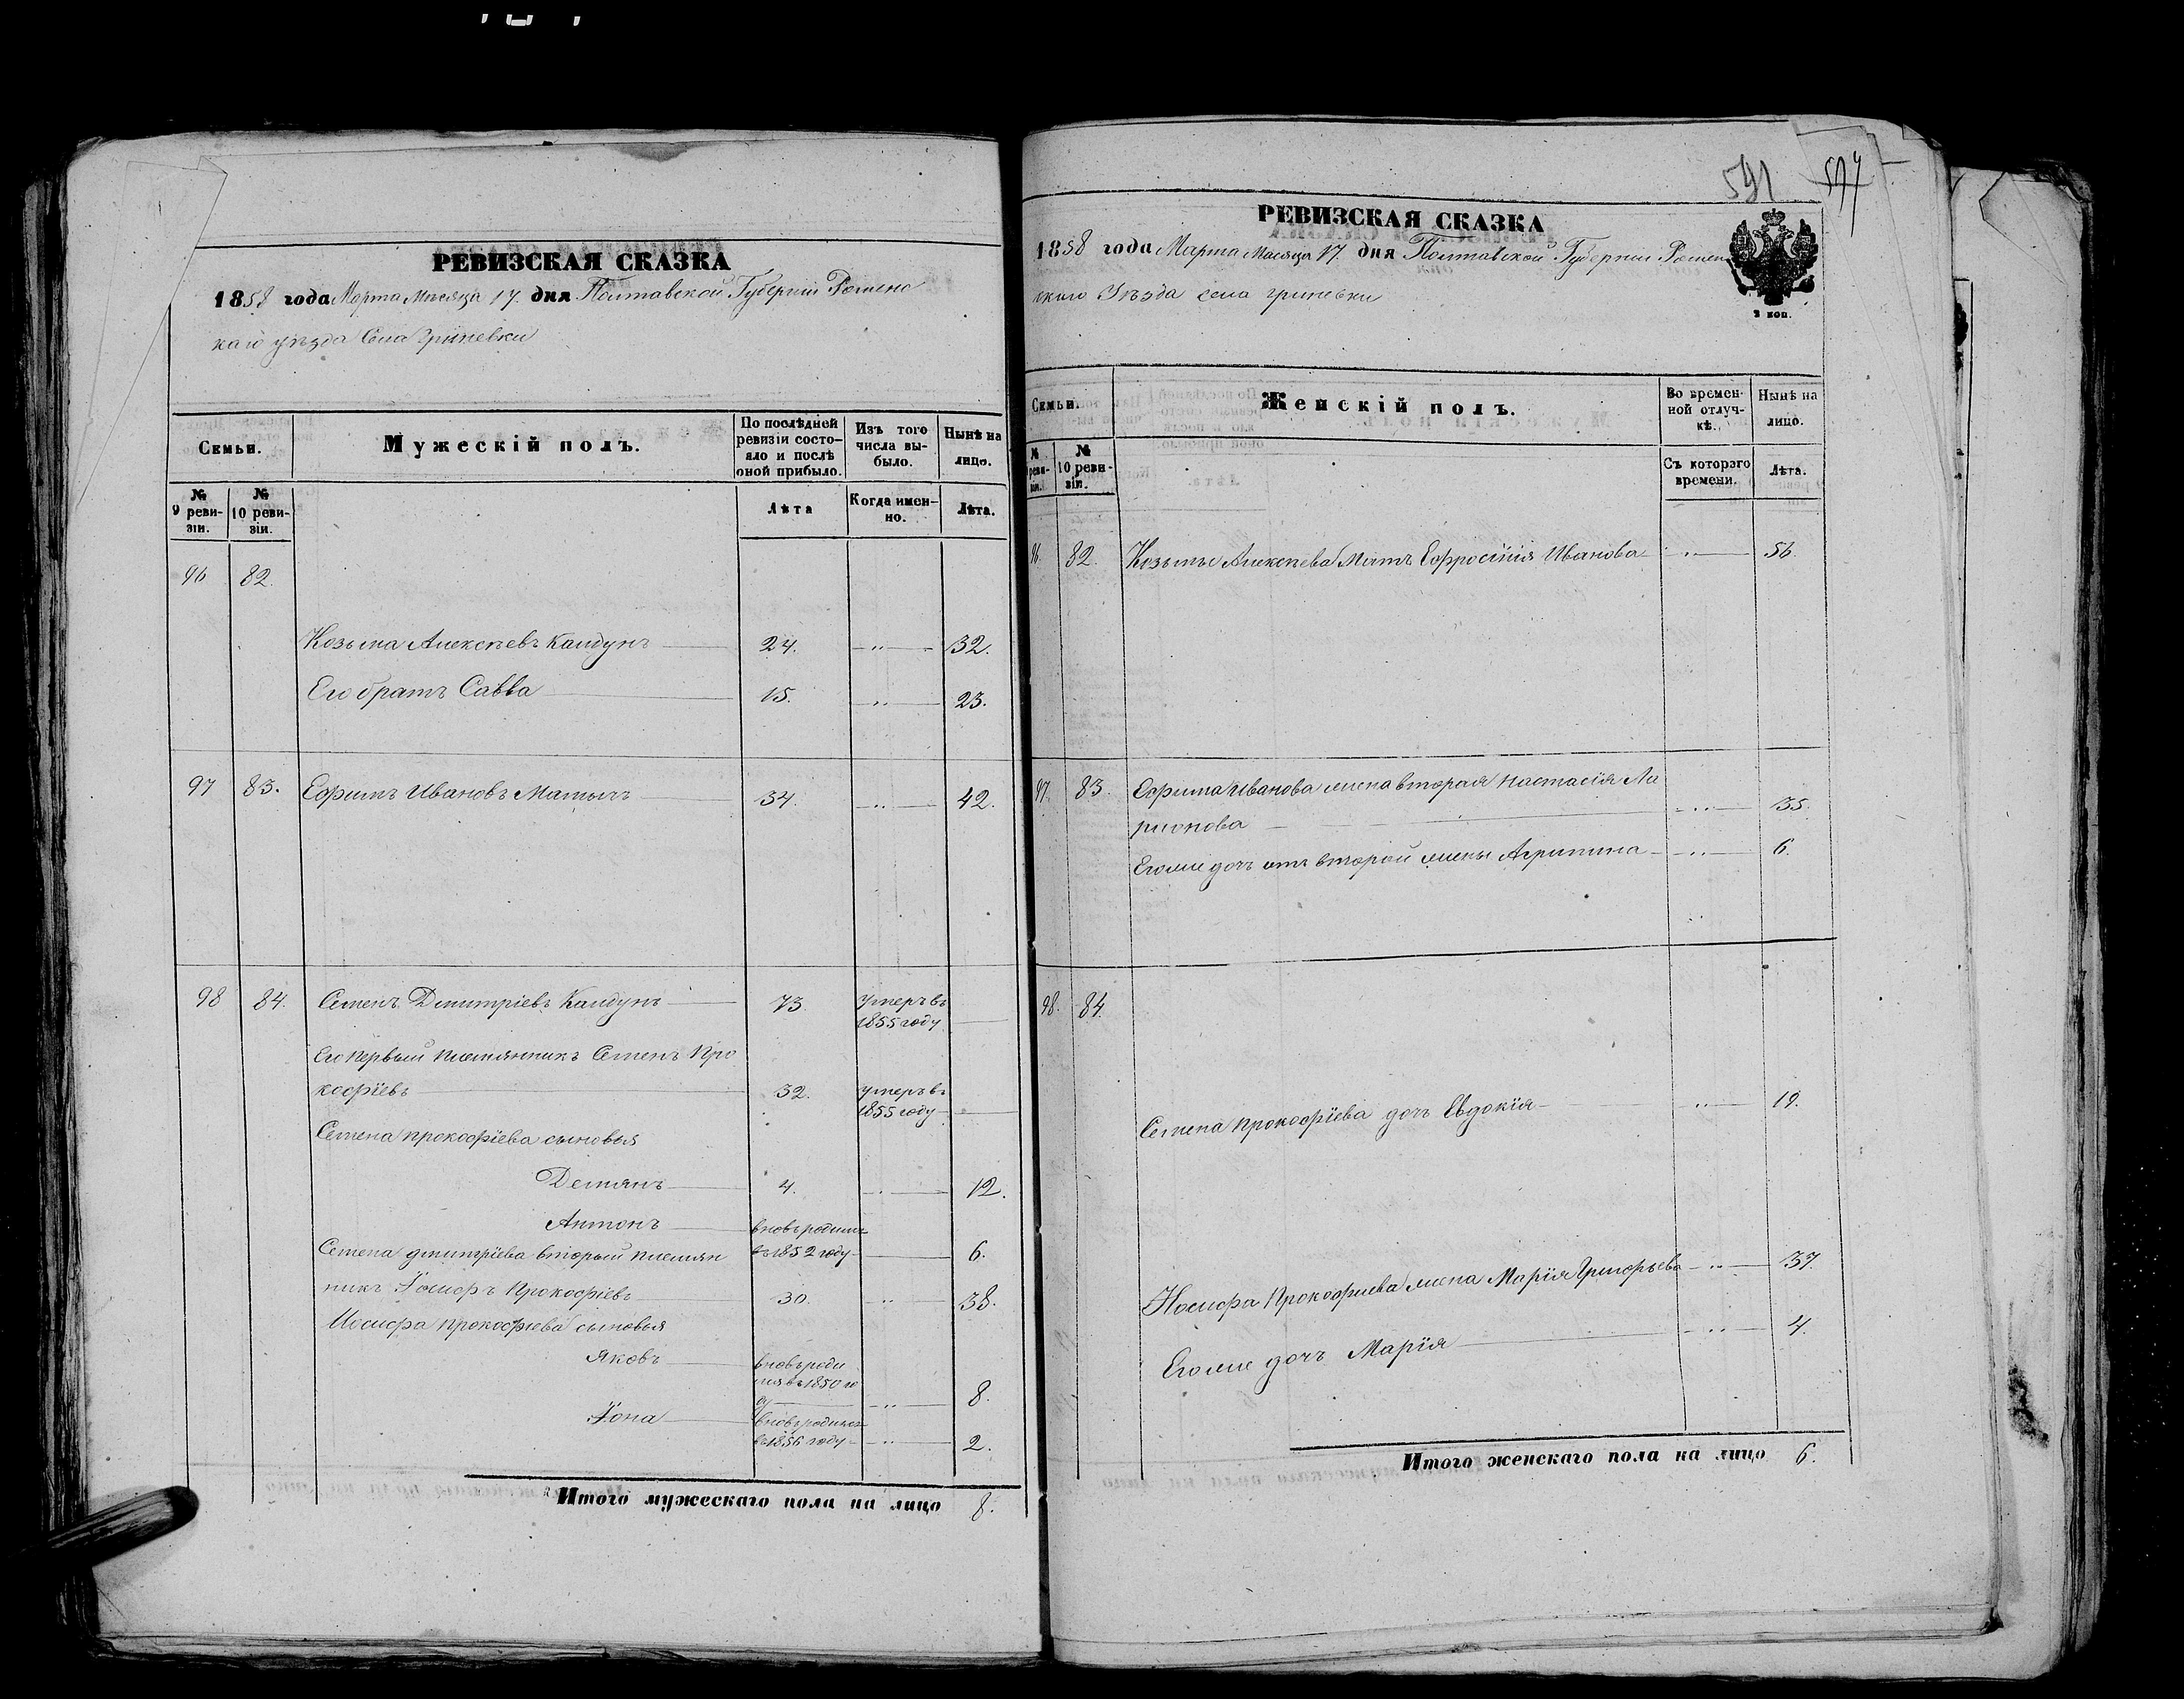 РЕВИЗСКАЯ СКАЗКА
1858 года Марта Месяца 17. дня Полтавской Губерніи Роменс
каго уѣзда Села Гриневки
Семьи.
Мужескій полъ.
По послѣдней ревизіи состо-яло и послѣ оной прибыло.
Изъ того числа вы-было.
Нынѣ на лицо.
№ 9 реви-зіи.
№ 10 реви-зіи.
Лѣта
Когда имен-но.
Лѣта.
96 82.
Козьма Алексѣевъ Калдунъ 24. „ 32.
Его братъ Савва 15. „ 23.
97 83. Ефимъ Ивановъ 34. „ 42.
98 84. Семенъ Дмитріевъ Калдунъ 73. Умеръ въ
1855 году
Его первый племянникъ Семенъ Про
кофіевъ 32. Умеръ въ
1855 году
Семена Прокофіева сыновья
Демянъ 4. „ 12.
Антонъ вновь родился
въ 1852 году 6.
Семена Дмитріева вторый племян
никъ Іосифъ Прокофіевъ 30. „ 38.
Иосифа Прокофіева сыновья
Яковъ вновь роди
лся въ 1850 го
ду „ 8.
Іона вновь родился
въ 1856 году „ 2.
Итого мужескаго пола на лицо 8.
591 574
РЕВИЗСКАЯ СКАЗКА
1858 года Марта Месяца 17. дня Полтавской Губерніи Ромен
скаго Уѣзда села Гриневки
2 коп.
Семьи.
Женскій полъ.
Во времен-ной отлуч-кѣ.
Нынѣ на лицо.
№ реви-зіи.
№ 10 реви-зіи.
Съ котораго времени.
Лѣта.
96. 82. Козьмы Алексѣева Мать Ефросинія Иванова „ 56.
97. 83. Ефима Иванова жена вторая Настасія Ла
рионова „ 35.
Его же дочь отъ второй жены Агрипина „ 6.
98. 84.
Семена Прокофіева дочь Евдокія „ 19.
Иосифа Прокофиева жена Марія Григорьева „ 37.
Его же дочь Марія „ 4.
Итого женскаго пола на лицо 6.